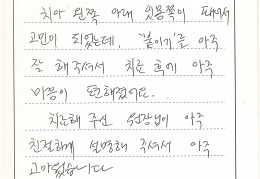 치아 왼쪽 아래 잇몸쪽이 패여서
고민이 되었는데, "붙이기"를 아주
잘 해주셔서 치료 후에 아주
마음이 편해졌어요.
치료해 주신 원장님이 아주
친절하게 설명해 주셔서 아주
고마웠습니다